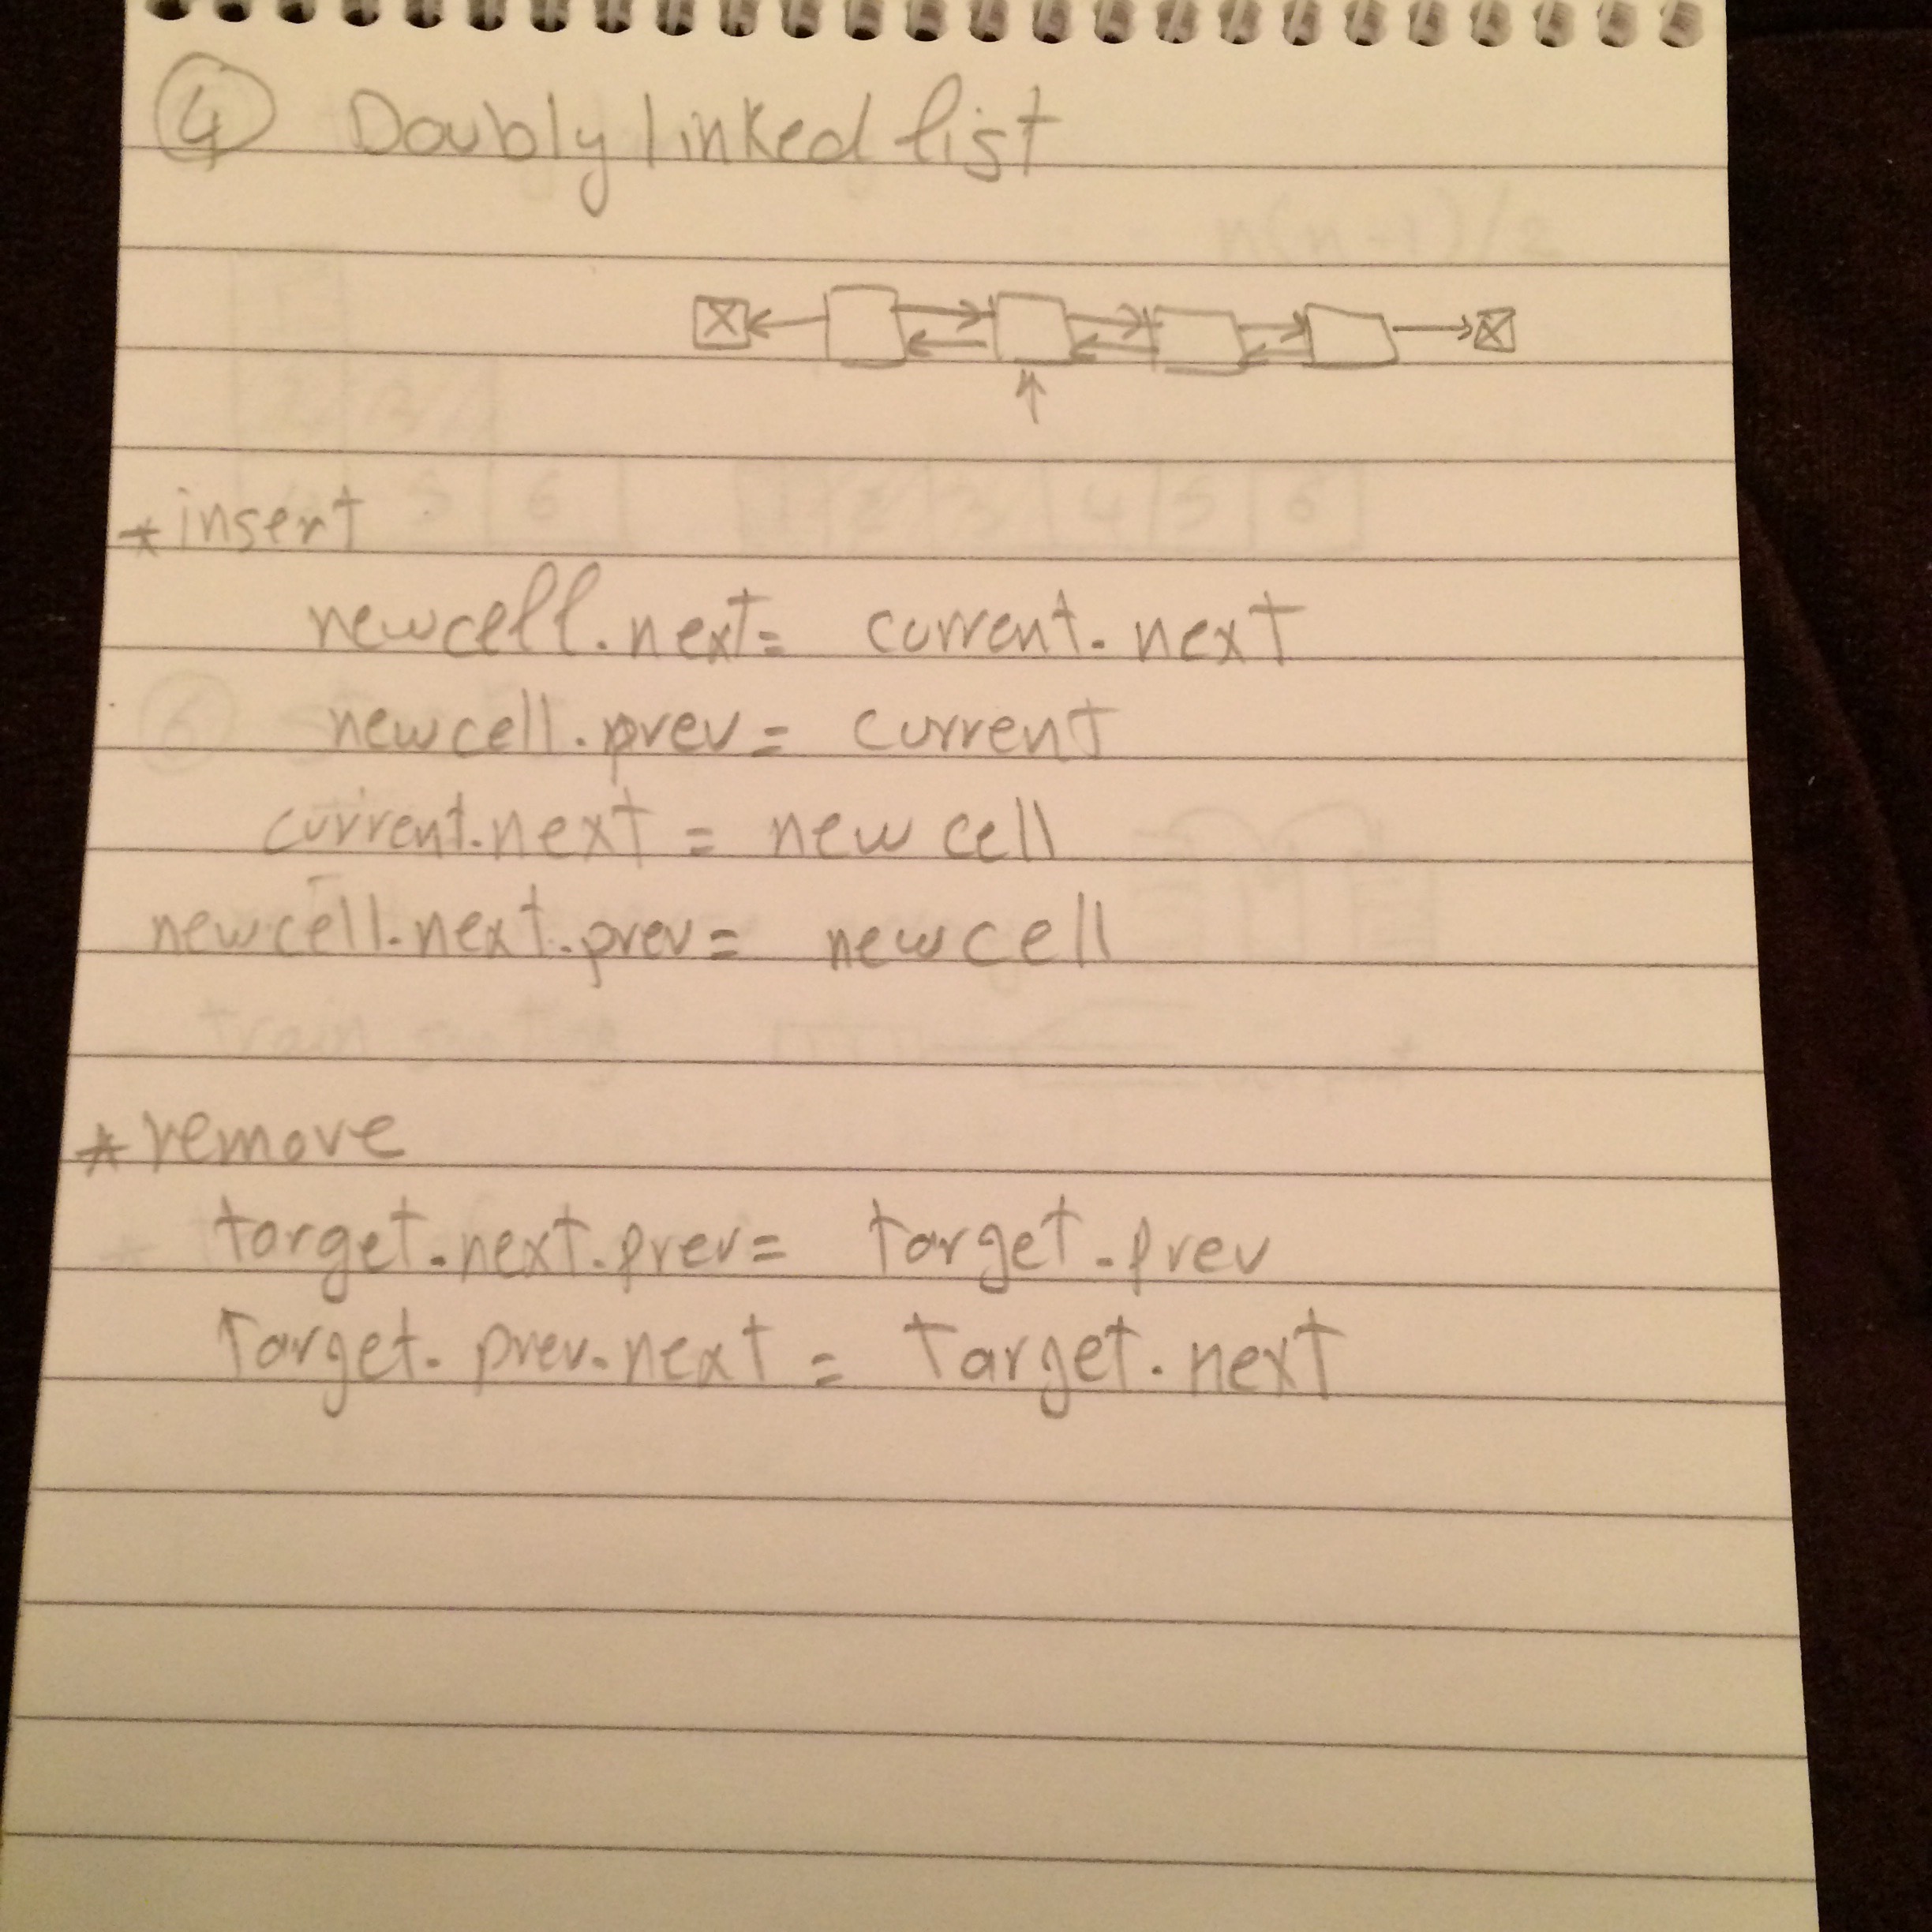 4 Doubly linked list
* insert
newcell.next = current.next
newcell.prev = current
current.next = new cell
newcell.next.prev = newcell
* remove
target.next.prev = target.prev
Target.prev.next = Target.next